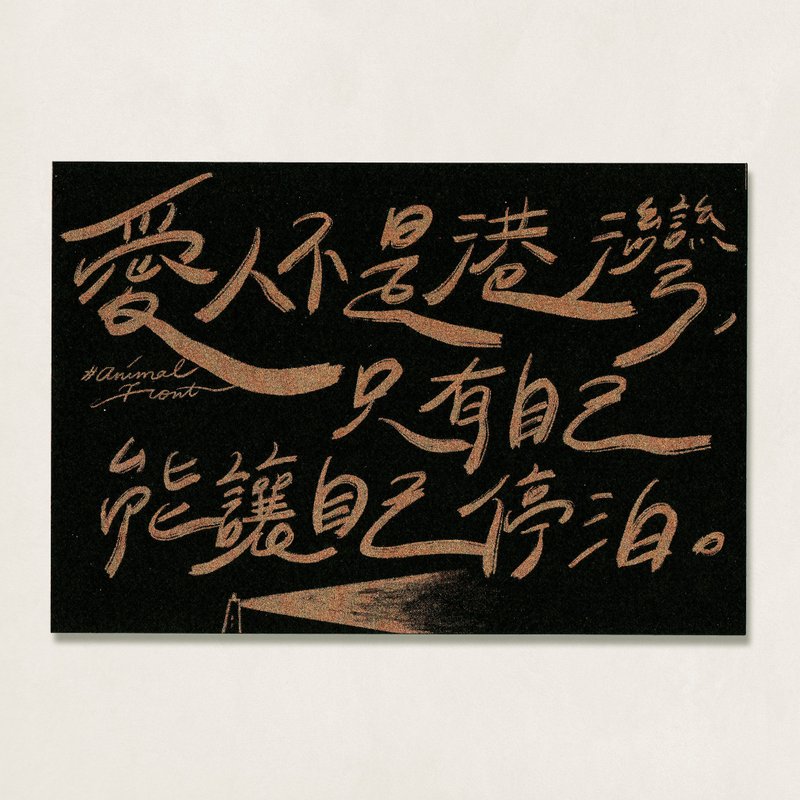 愛人不是港灣，
#animal
Front
只有自己
能讓自己停泊。